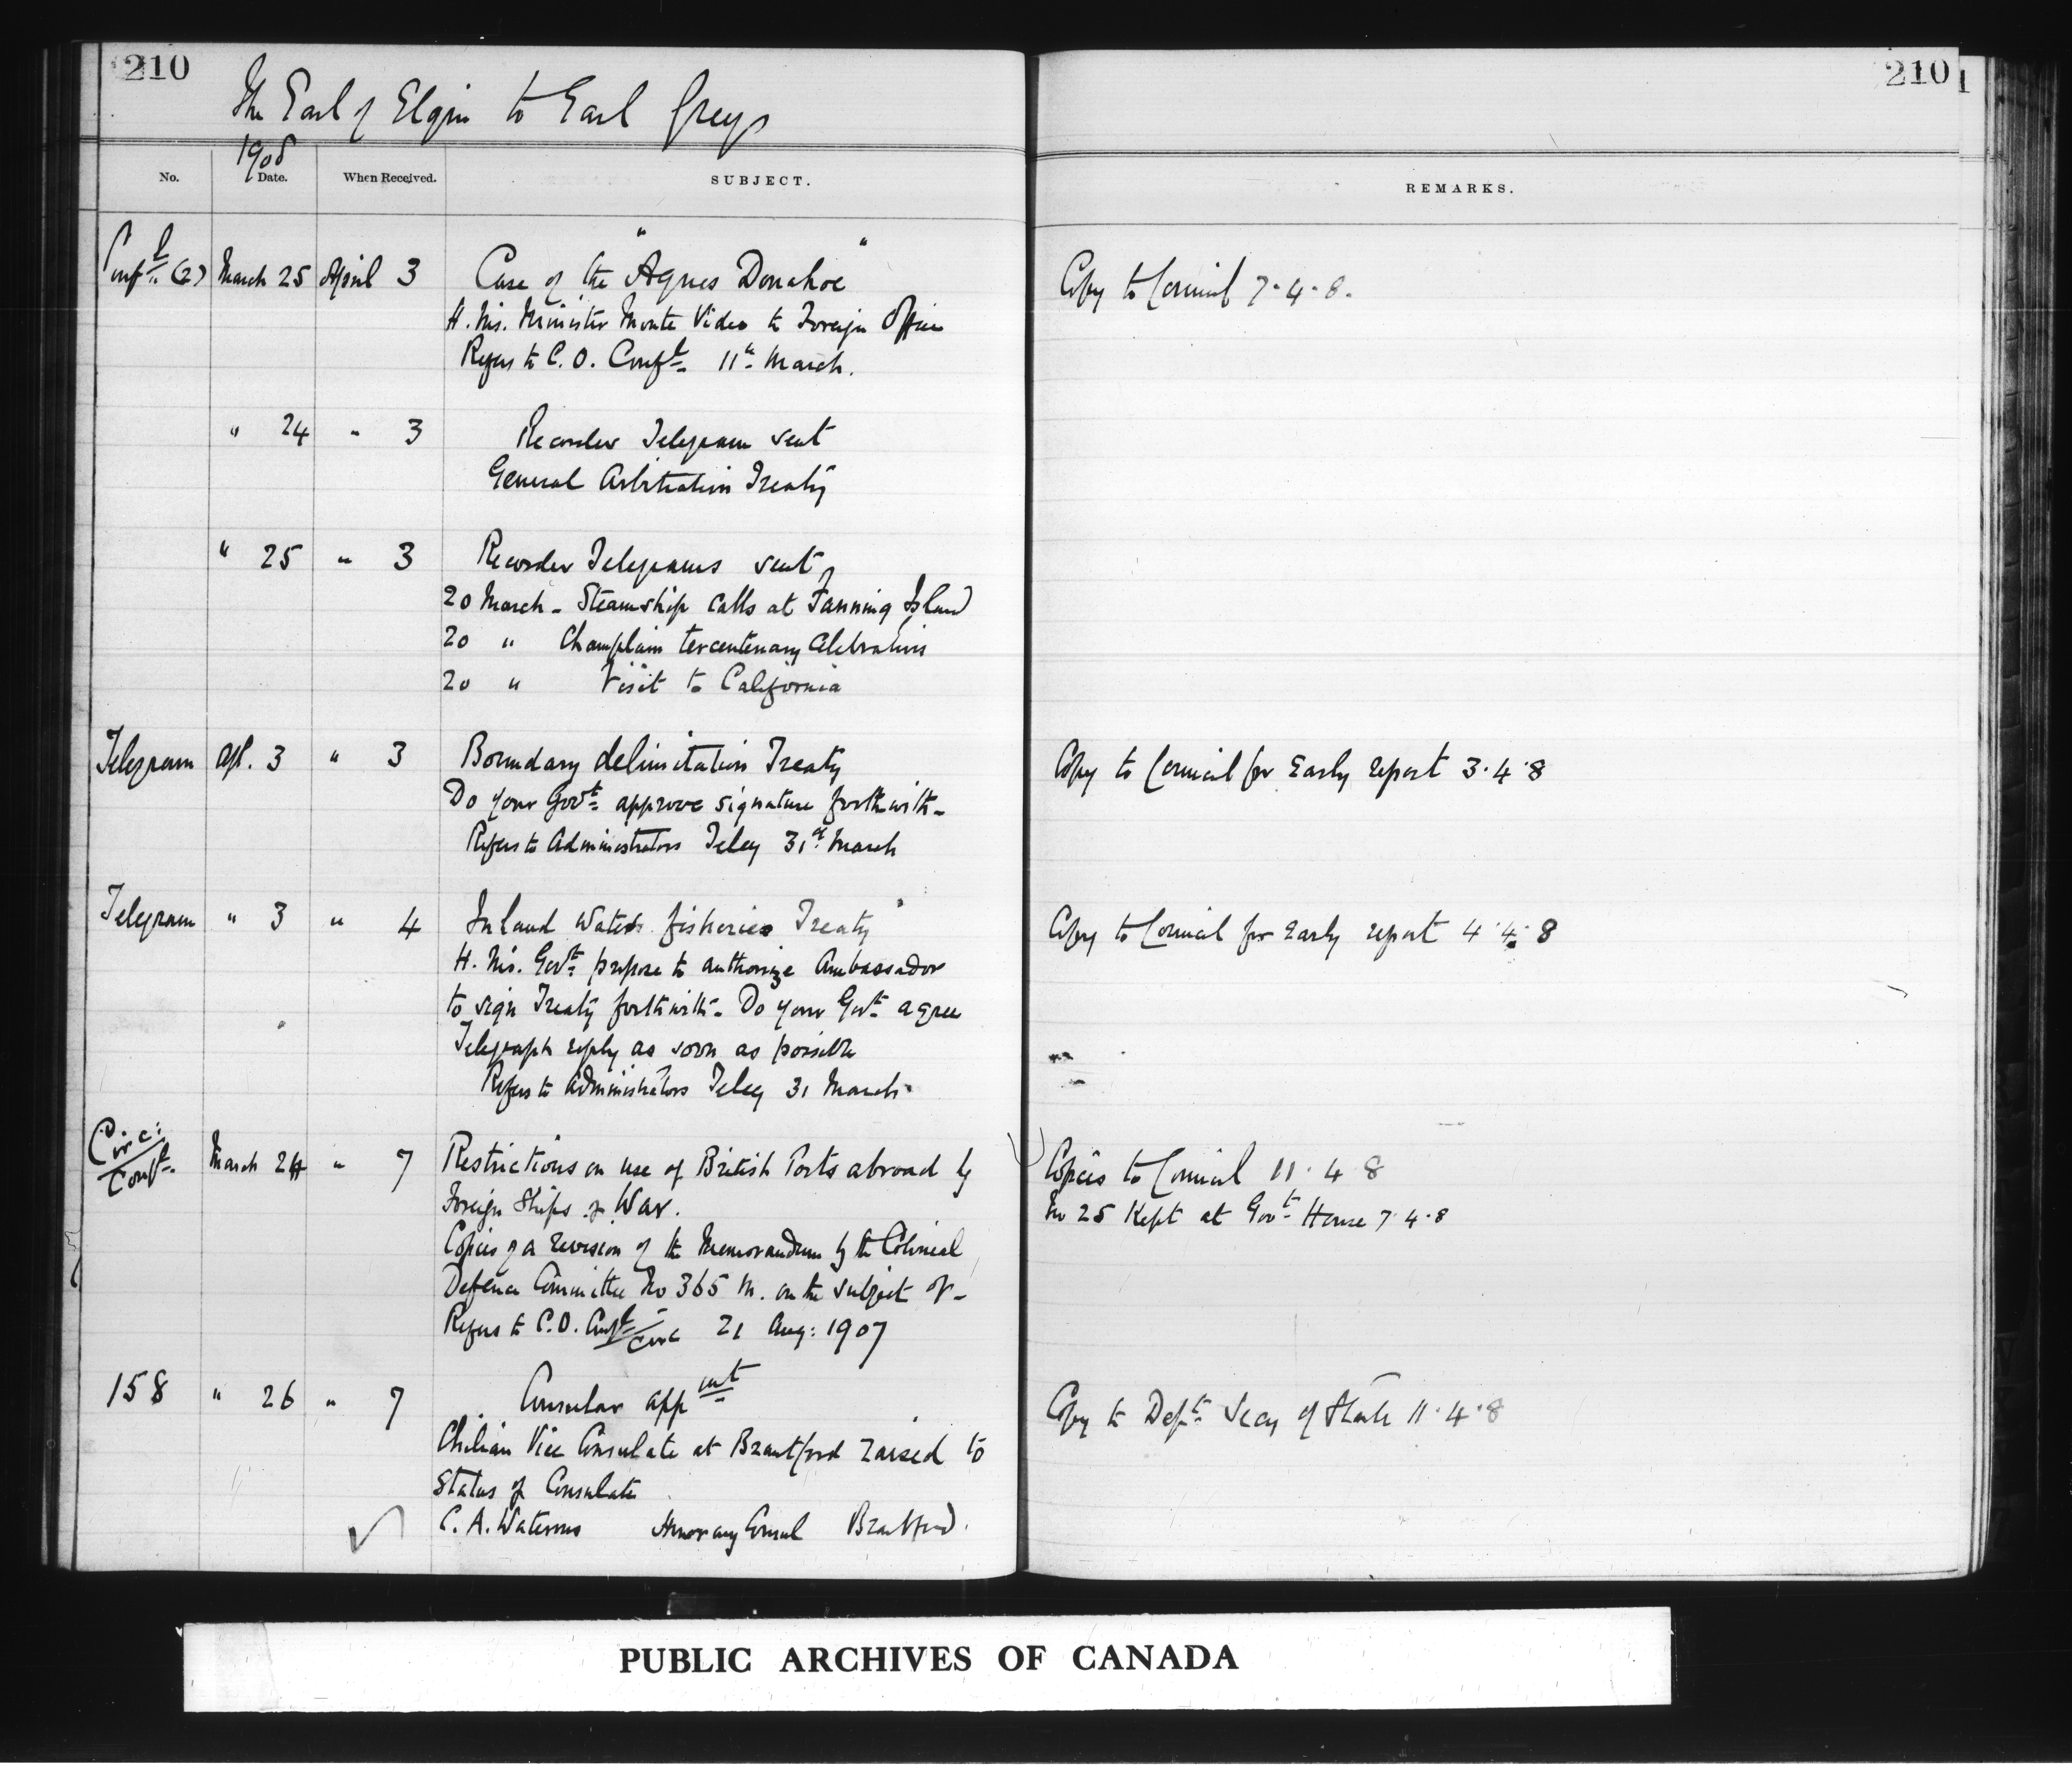 210
210
The Earl of Elgin to Earl Grey
1908
No. Date. When Received. SUBJECT. REMARKS.
Confl. (2) March 25 April 3 Case of the "Agnes Donahoe" Copy to Council 7.4.8.
H. Ms. Minister Monte Video to Foreign Office
Refers to C.O. Confl. 11th March.
" 24 " 3 Recorder Telegram sent
General Arbitration Treaty
" 25 " 3 Recorder Telegrams sent
20 March - Steamship calls at Fanning Island
20 " Champlain tercentenary Celebrations
20 " Visit to California
Telegram Apl. 3 " 3 Boundary delimitation Treaty Copy to Council for Early report 3.4.8
Do your Govt. approve signature forthwith -
Refers to Administrators Teleg 31st March
Telegram " 3 " 4 Inland Waters fisheries Treaty Copy to Council for Early report 4.4.8
H. Ms. Govt. propose to authorize Ambassador
to sign Treaty forthwith - Do your Govt. agree
Telegraph reply as soon as possible
Refers to Administrators Teleg 31 March
Circ: Conft. March 24 " 7 Restrictions on use of British Ports abroad by Copies to Council 11.4.8
Foreign Ships of War. No 25 Kept at Govt. House 7.4.8
Copies of a revision of the Memorandum by the Colonial
Defence Committee No 365 M. on the subject of -
Refers to C.O. Confl. Circ 21 Aug: 1907
158 " 26 " 7 Consular appmt Copy to Dept. Secy of State 11.4.8
Chilian Vice Consulate at Brantford raised to
Status of Consulate
C. A. Waterous Honorary Consul Brantford.
PUBLIC ARCHIVES OF CANADA